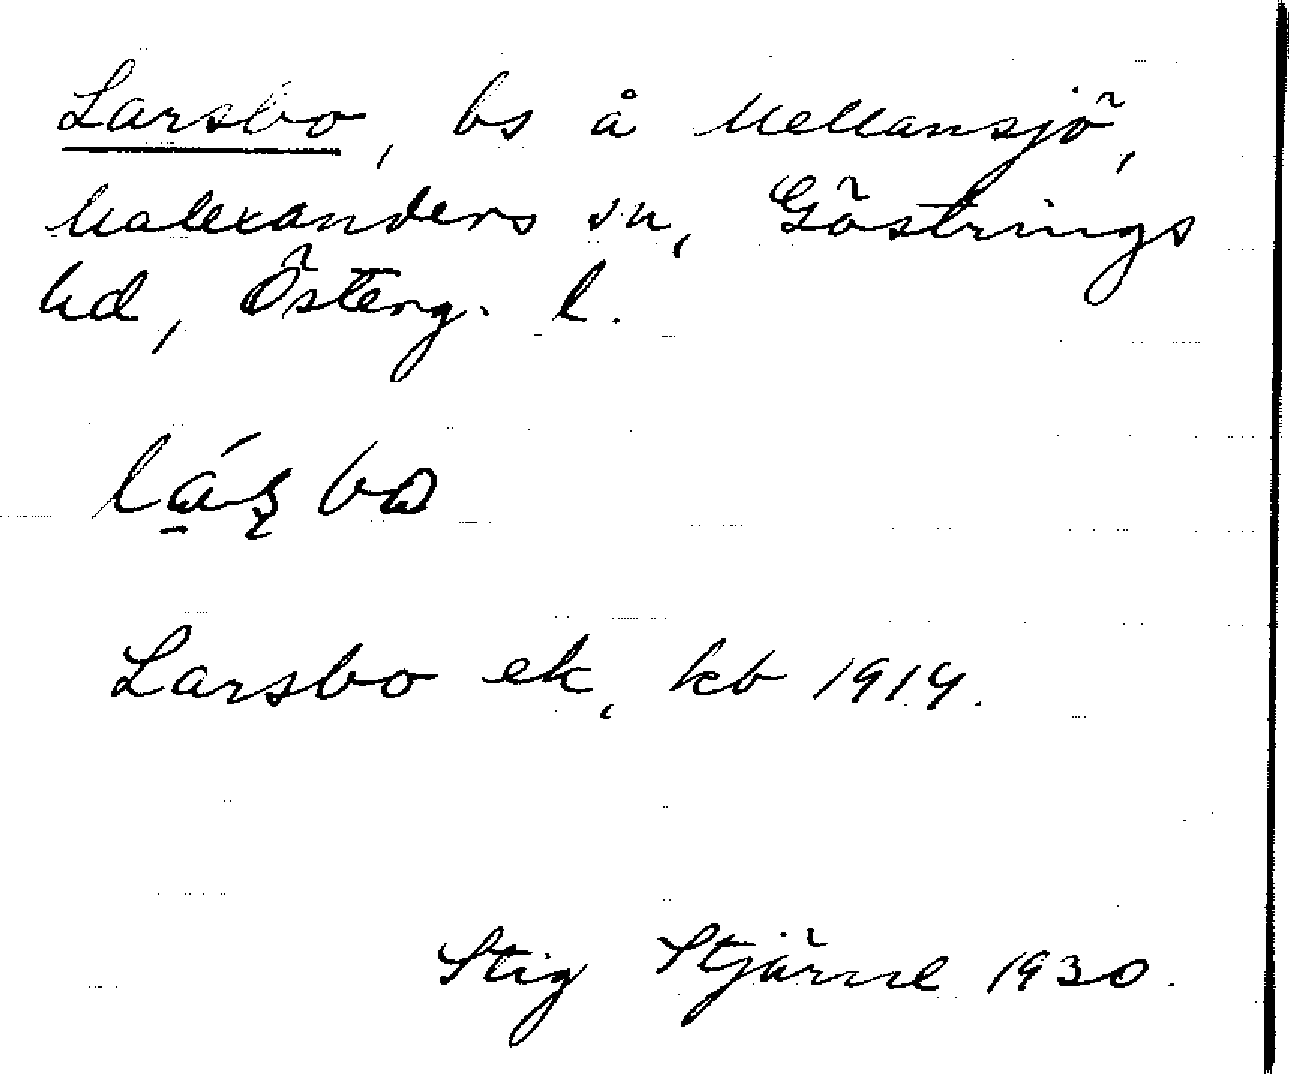 Larsbo, bs å Mellansjö,
Malexanders sn, Göstrings
hd, Österg. l.
Larsbo ek, kb 1914.
Stig Stjärne 1930.